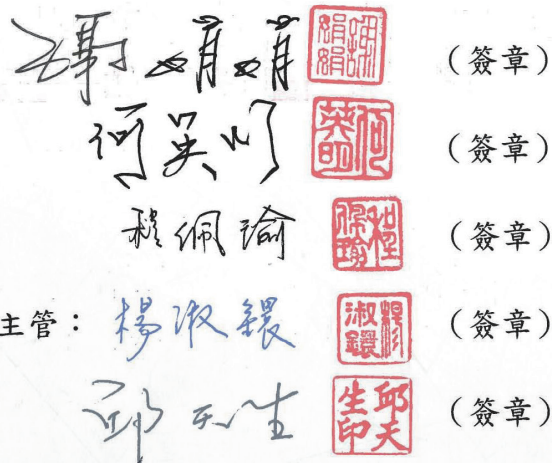 謝娟娟 謝娟娟 （簽章）
何英明 何英明 （簽章）
程佩瑜 程佩瑜 （簽章）
主管：楊淑鐶 楊淑鐶 （簽章）
邱天生 邱天生印 （簽章）